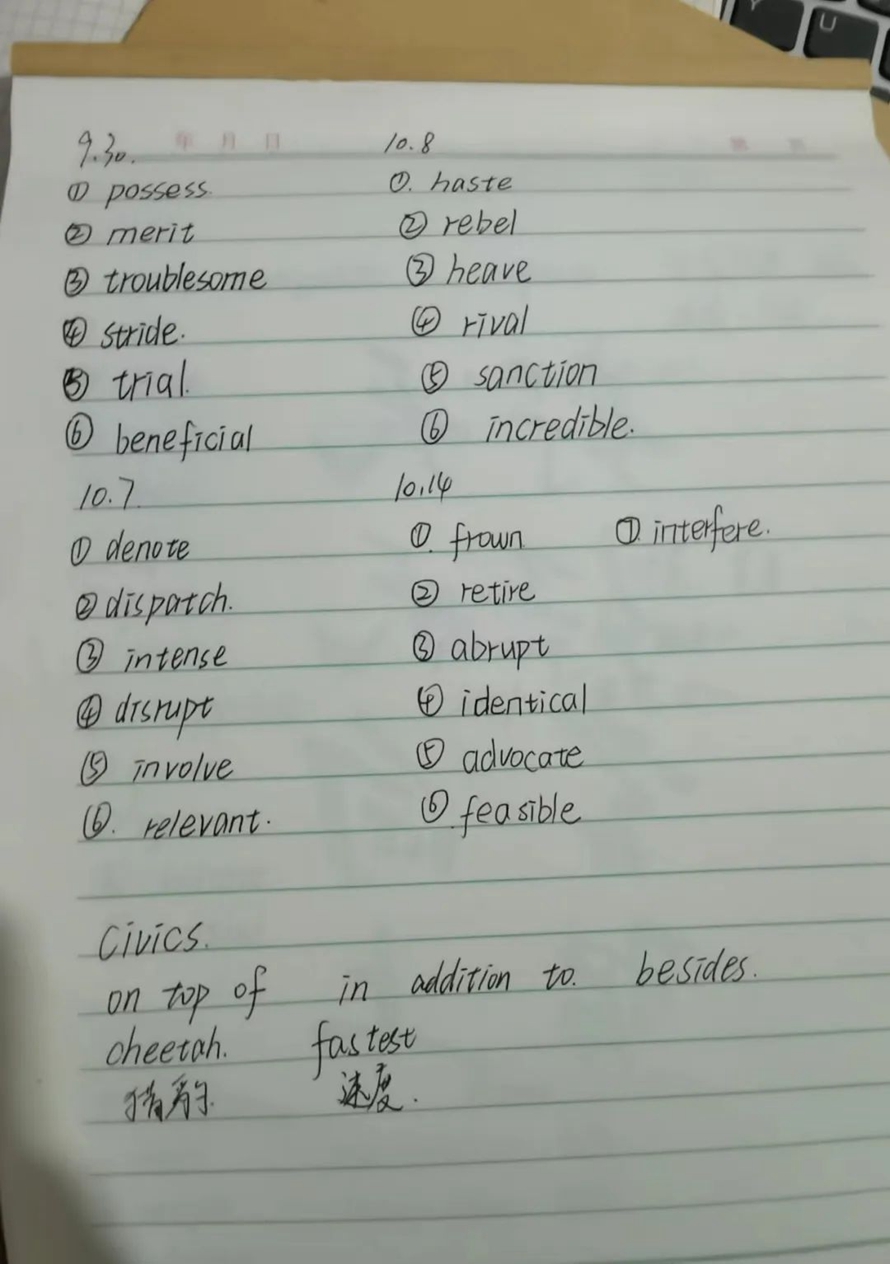 年 月 日
9.30.
① possess.
② merit
③ troublesome
④ stride.
⑤ trial.
⑥ beneficial
10.8
①. haste
② rebel
③ heave
④ rival
⑤ sanction
⑥ incredible.
10.7
① denote
② dispatch.
③ intense
④ disrupt
⑤ involve
⑥. relevant.
10.14
①. frown
② retire
③ abrupt
④ identical
⑤ advocate
⑥ feasible
⑦ interfere.
Civics.
on top of in addition to. besides.
cheetah. fastest
猎豹. 速度.
Y U